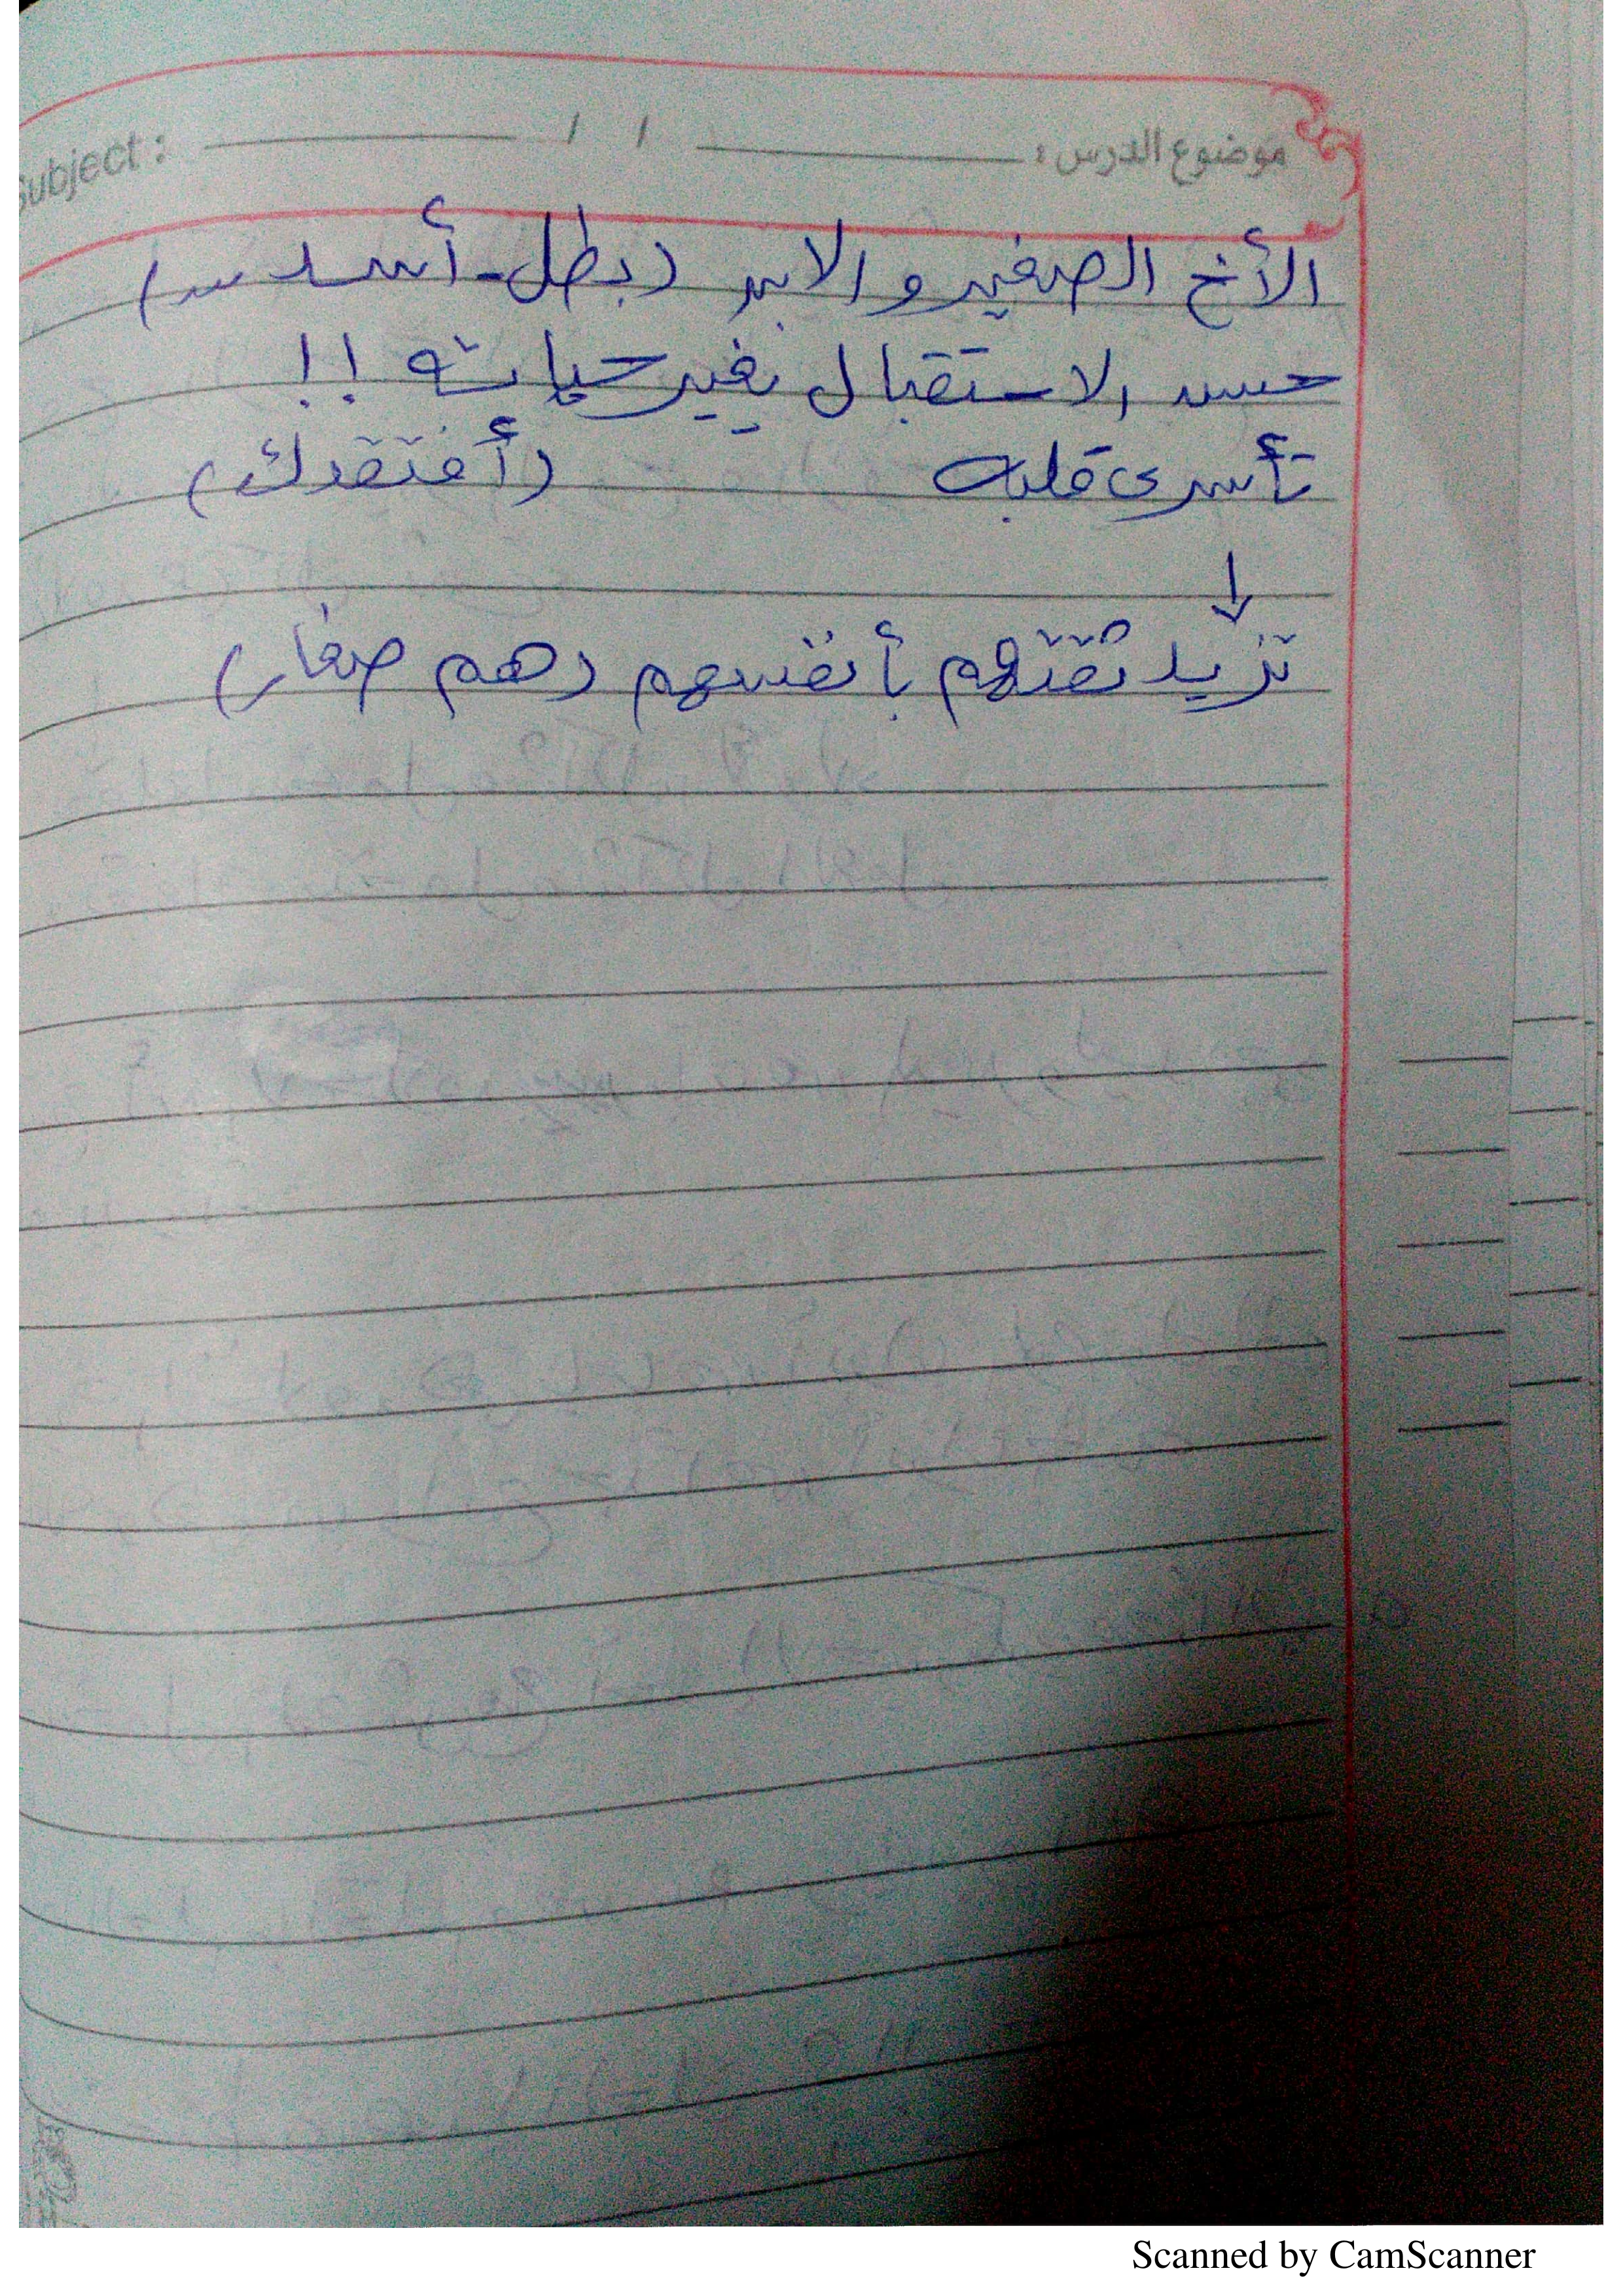 موضوع الدرس : / / Subject :
الأخ الصغير والابن (بطل - أسد ــ)
حسن الاستقبال يغير حياته !!
تأسرى قلبه (أفتقدك)
↓
تزيد ثقتهم بأنفسهم (هم صغار)
Scanned by CamScanner